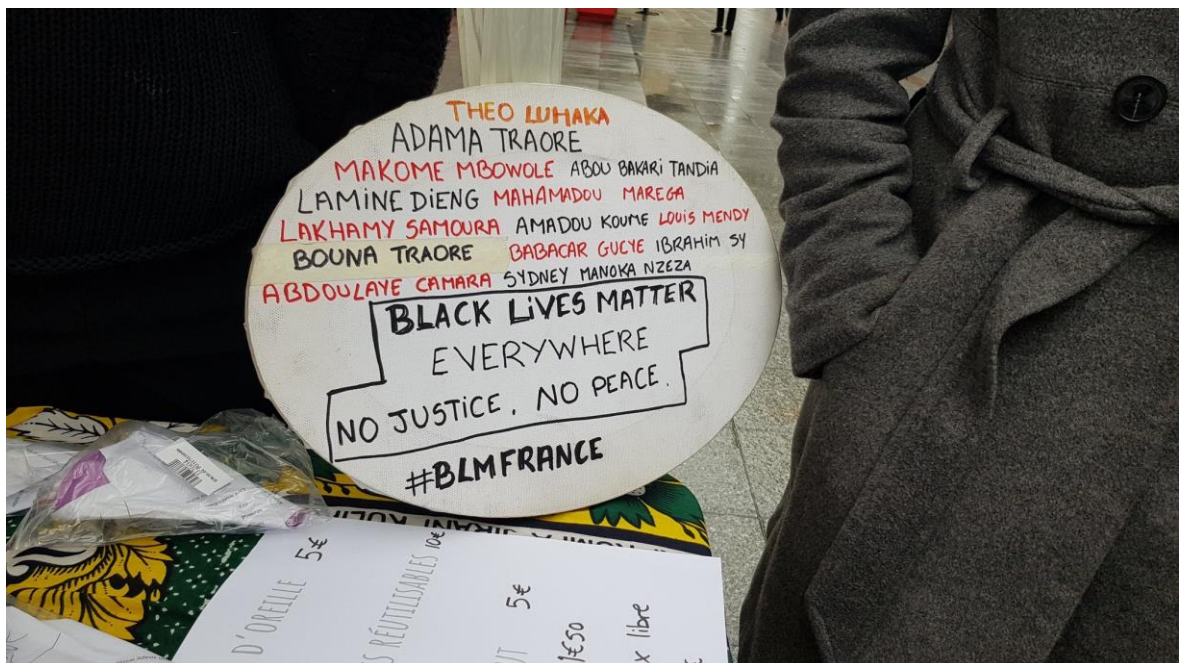 THEO LUHAKA
ADAMA TRAORE
MAKOME MBOWOLE ABOU BAKARI TANDIA
LAMINE DIENG MAHAMADOU MAREGA
LAKHAMY SAMOURA AMADOU KOUME LOUIS MENDY
BOUNA TRAORE BABACAR GUCYE IBRAHIM SY
ABDOULAYE CAMARA SYDNEY MANOKA NZEZA
BLACK LIVES MATTER
EVERYWHERE
NO JUSTICE, NO PEACE.
#BLMFRANCE
D'OREILLE 5€
RÉUTILISABLES 10€
5€
1€50
x libre